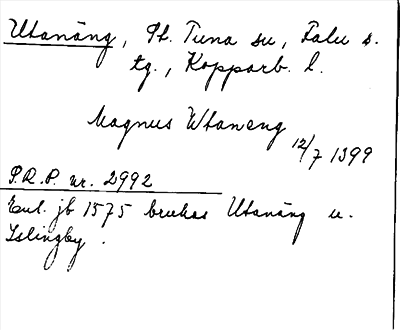 Utanäng, St. Tuna sn, Falu s.
tg., Kopparb. l.
Magnus Wtaneng
12/7 1399
P.R.P. nr. 2992
Enl. jb 1575 brukas Utanäng u.
Islingby.